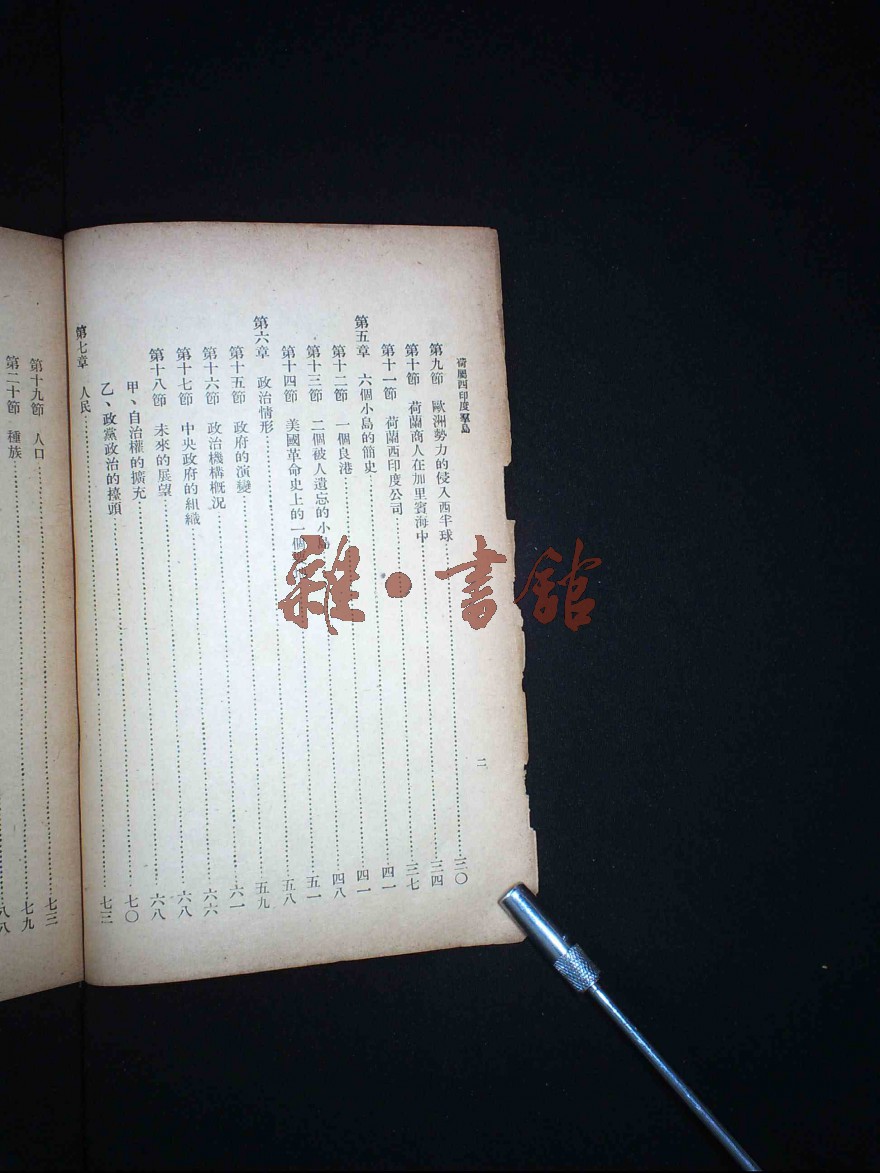 荷屬西印度羣島
二
第九節 歐洲勢力的侵入西半球…………三〇
第十節 荷蘭商人在加里賓海中…………三四
第十一節 荷蘭西印度公司…………三七
第五章 六個小島的簡史…………四一
第十二節 一個良港…………四一
第十三節 二個被人遺忘的小島…………四八
第十四節 美國革命史上的一個…………五一
第六章 政治情形…………五八
第十五節 政府的演變…………五九
第十六節 政治機構概況…………六一
第十七節 中央政府的組織…………六六
第十八節 未來的展望…………六八
甲、自治權的擴充…………六八
乙、政黨政治的擡頭…………七〇
第七章 人民…………七三
第十九節 人口…………七三
第二十節 種族…………七九
八八
雜·書館